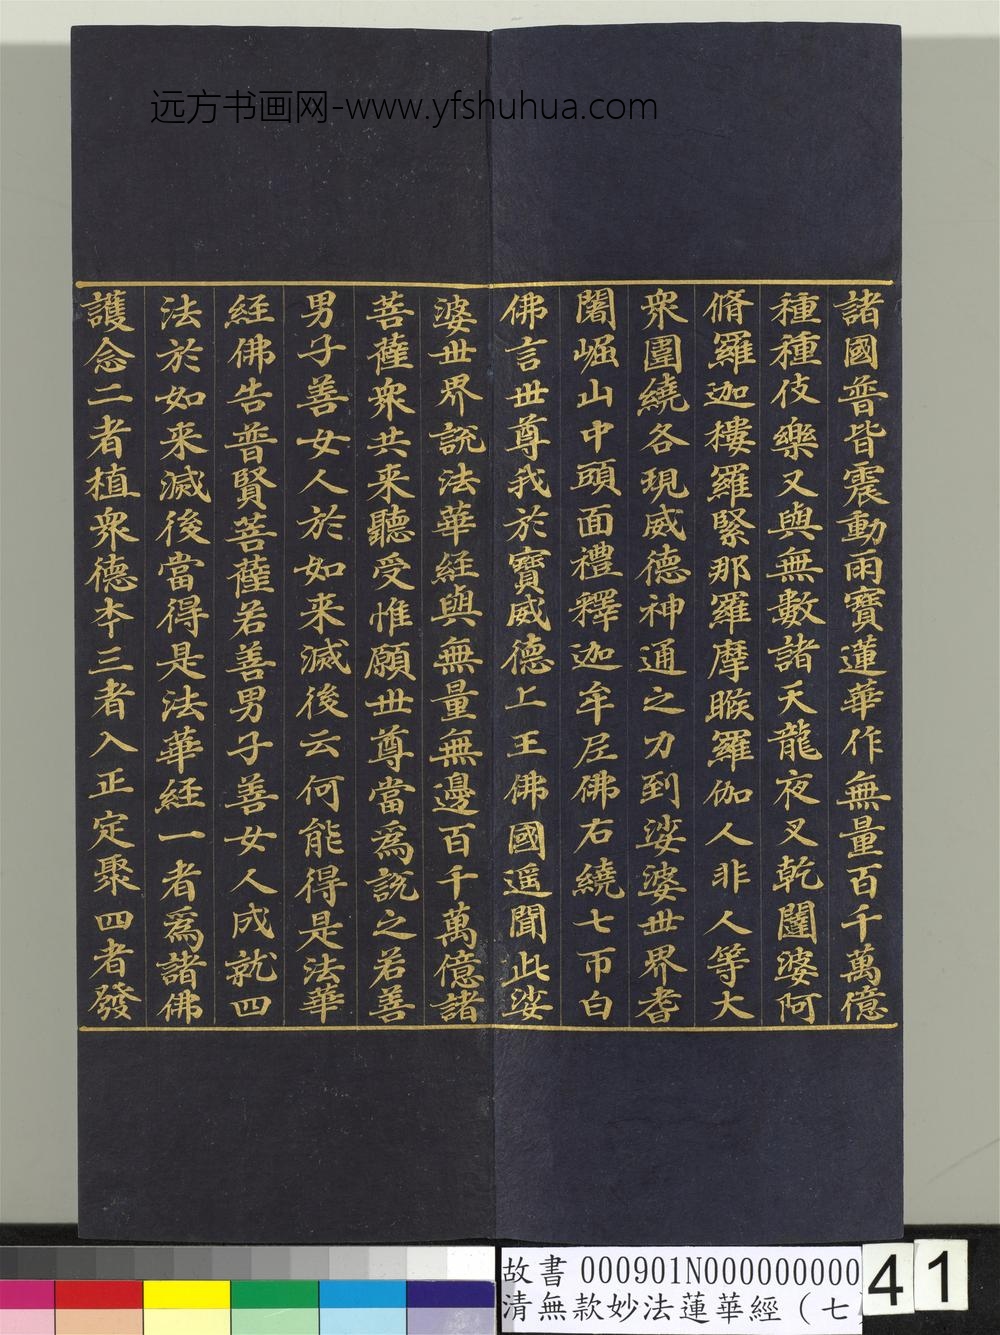 远方书画网-www.yfshuhua.com
諸國普皆震動雨寶蓮華作無量百千萬億
種種伎樂又與無數諸天龍夜叉乾闥婆阿
脩羅迦樓羅緊那羅摩睺羅伽人非人等大
衆圍繞各現威德神通之力到娑婆世界耆
闍崛山中頭面禮釋迦牟尼佛右繞七帀白
佛言世尊我於寶威德上王佛國遥聞此娑
婆世界說法華經與無量無邊百千萬億諸
菩薩衆共来聽受惟願世尊當爲說之若善
男子善女人於如来滅後云何能得是法華
經佛告普賢菩薩若善男子善女人成就四
法於如来滅後當得是法華經一者爲諸佛
護念二者植衆德本三者入正定聚四者發
故書 000901N000000000
清無款妙法蓮華經（七
41